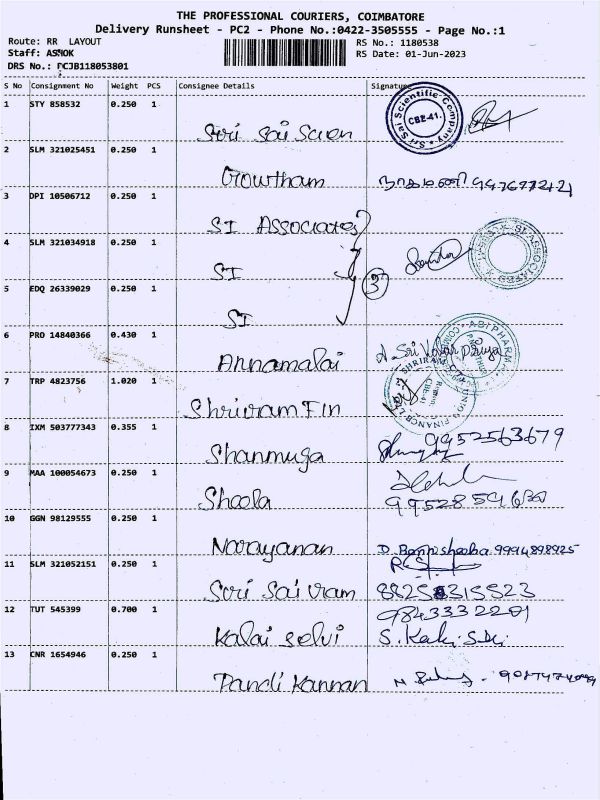 THE PROFESSIONAL COURIERS, COIMBATORE
Delivery Runsheet - PC2 - Phone No.:0422-3505555 - Page No.:1
Route: RR LAYOUT
RS No.: 1180538
Staff: ASHOK
RS Date: 01-Jun-2023
DRS No.: PCJB118053801
S No Consignment No Weight PCS Consignee Details Signature
1 STY 858532 0.250 1
Sri Sai Scien
Sri Sai Scientific Company CBE-41.
2 SLM 321025451 0.250 1
Gowtham நாகமணி
3 DPI 10506712 0.250 1
SI Associates
4 SLM 321034918 0.250 1
SI 3
5 EDQ 26339029 0.250 1
SI
6 PRO 14840366 0.430 1
Annamalai
7 TRP 4823756 1.020 1
Shriram Fin
8 IXM 503777343 0.355 1
Shanmuga 9952563679
9 MAA 100054673 0.250 1
Sheela
10 GGN 98129555 0.250 1
Narayanan 9994898925
11 SLM 321052151 0.250 1
Sri Sai Vram
12 TUT 545399 0.700 1
9843332201
Kalai Selvi
13 CNR 1654946 0.250 1
Pandi Kannan